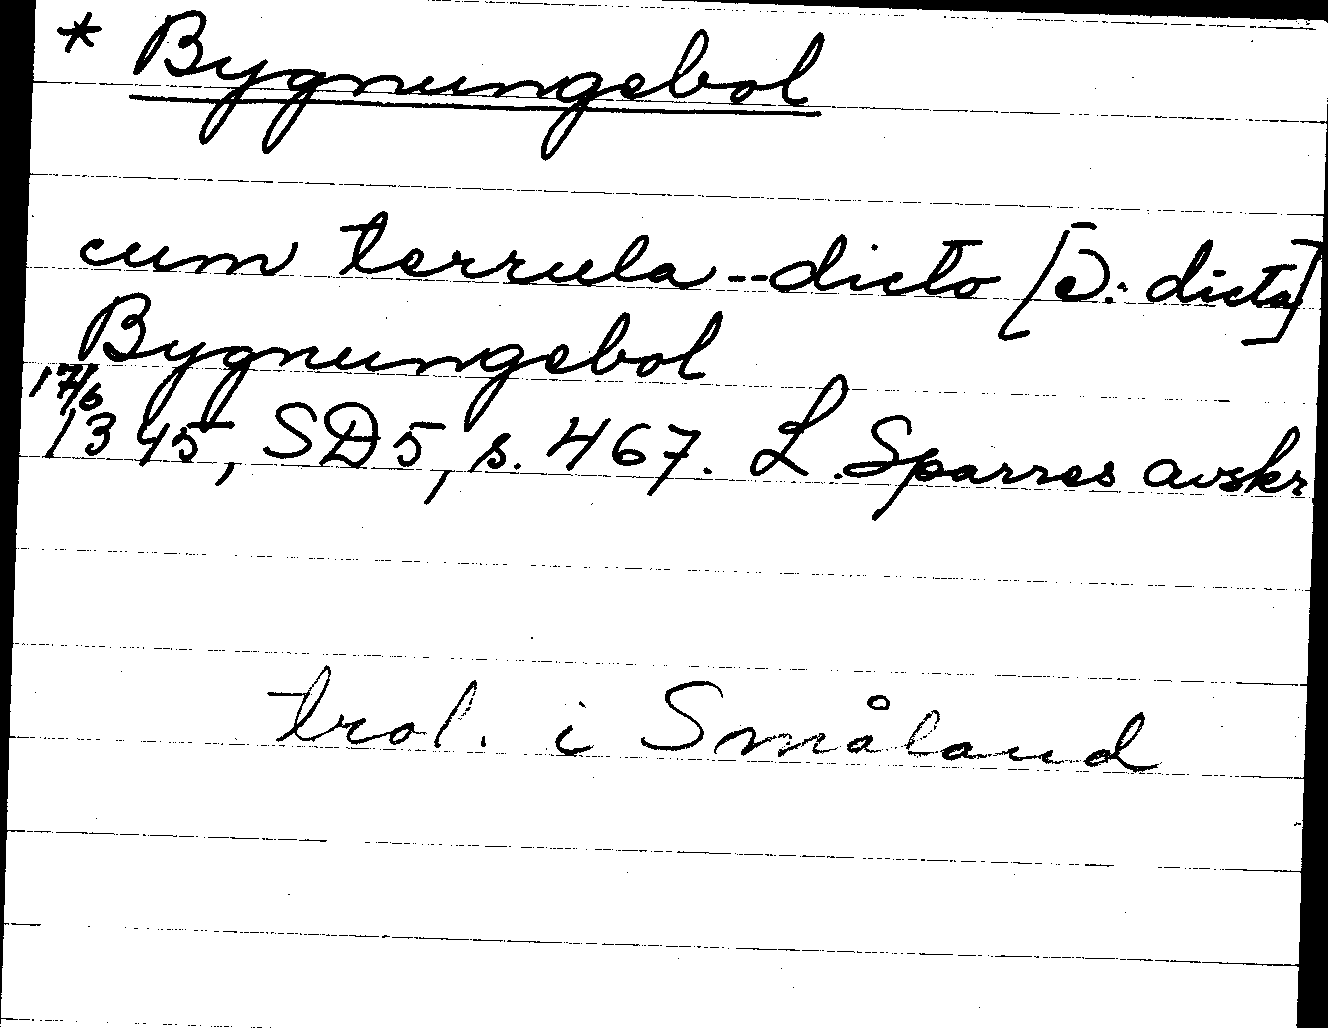 * Bygnungebol
cum terrula -- dicto [ɔ: dicta]
Bygnungebol
17/6
1345, SD5, s. 467. L. Sparres avskr
trol. i Småland